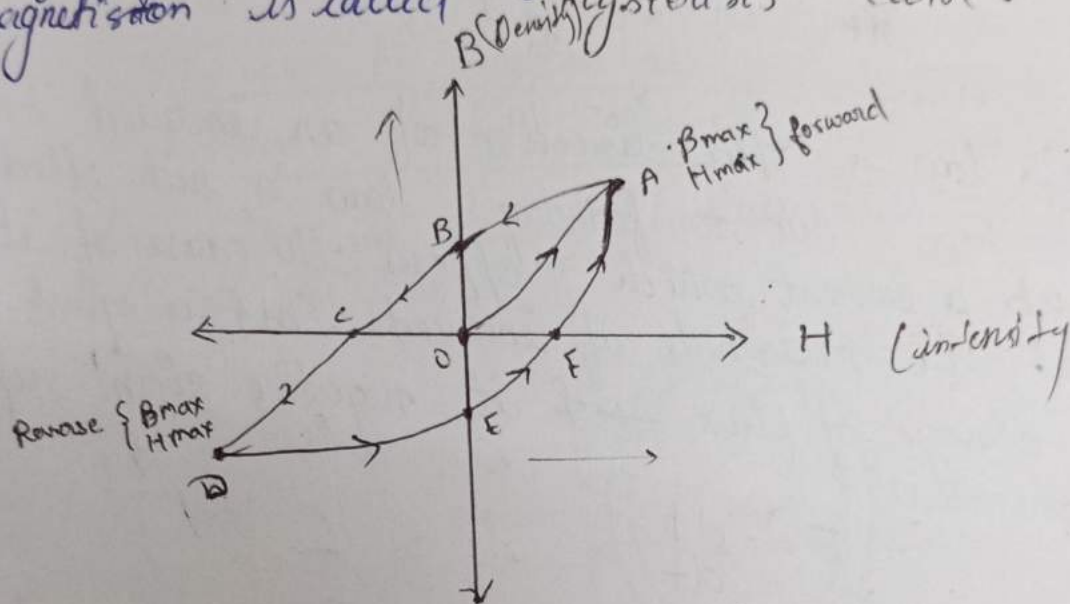 agnetisation is called
B (Density)
A . Bmax } forward
Hmax
B
C
O
F
H (intensity
E
Reverse { Bmax
Hmax
D